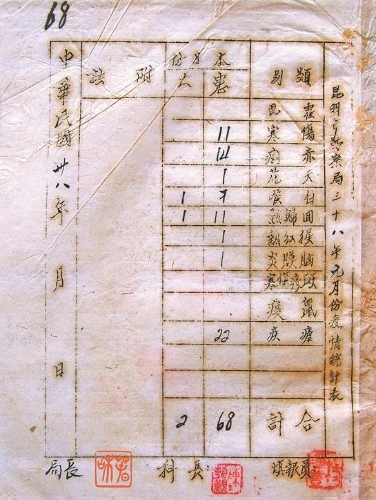 68
昆明市警察局三十八年元月份疫情統計表
類別
本月份
患
亡
附註
霍亂
傷寒 11
赤痢 14
天花 1
白喉 7 1
回歸熱 11 1
猩紅熱 1
腦膜炎 1
斑疹傷寒
鼠疫
瘧疾 22
合計 68 2
中華民國卅八年 月 日
填報員
科長
局長